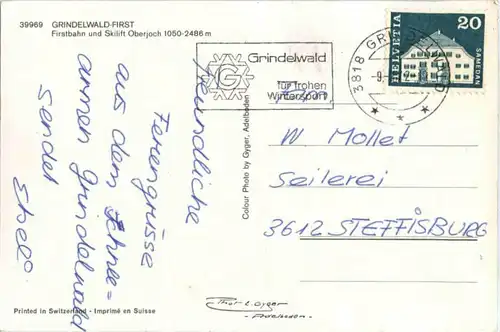 39969 GRINDELWALD-FIRST
Firstbahn und Skilift Oberjoch 1050-2486 m
Freundliche
Feriengrüsse
aus dem Schnee=
armen Grindelwald
sendet
Grindelwald
für frohen
Wintersport
3818 GRINDELWALD
HELVETIA
20
SAMEDAN
Colour Photo by Gyger, Adelboden
W. Mollet
Seilerei
3612 STEFFISBURG
Printed in Switzerland - Imprimé en Suisse
Phot E. Gyger
Adelboden